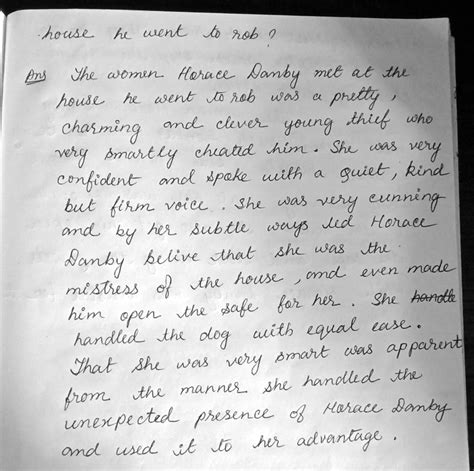 house he went to rob ?
Ans The women Horace Danby met at the
house he went to rob was a pretty,
charming and clever young thief who
very smartly cheated him. She was very
confident and spoke with a quiet, kind
but firm voice. She was very cunning
and by her subtle ways led Horace
Danby belive that she was the
mistress of the house, and even made
him open the safe for her. She handle
handled the dog with equal ease.
That she was very smart was apparent
from the manner she handled the
unexpected presence of Horace Danby
and used it to her advantage.